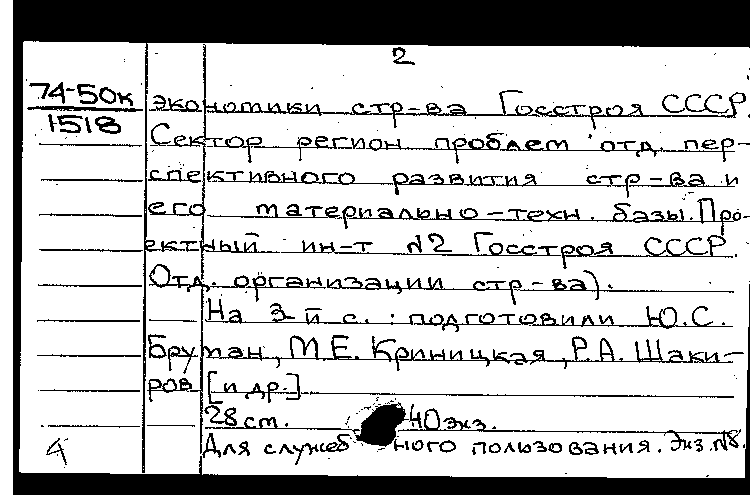 2
74-50к
1518
экономики стр-ва Госстроя СССР.
Сектор регион проблем отд. пер-
спективного развития стр-ва и
его материально-техн. базы. Про-
ектный ин-т №2 Госстроя СССР.
Отд. организации стр-ва).
На 3-й с.: подготовили Ю.С.
Бруман, М.Е. Криницкая, Р.А. Шаки-
ров [и др.]
28 ст. 40 экз.
Для служебного пользования. Экз. №8.
4